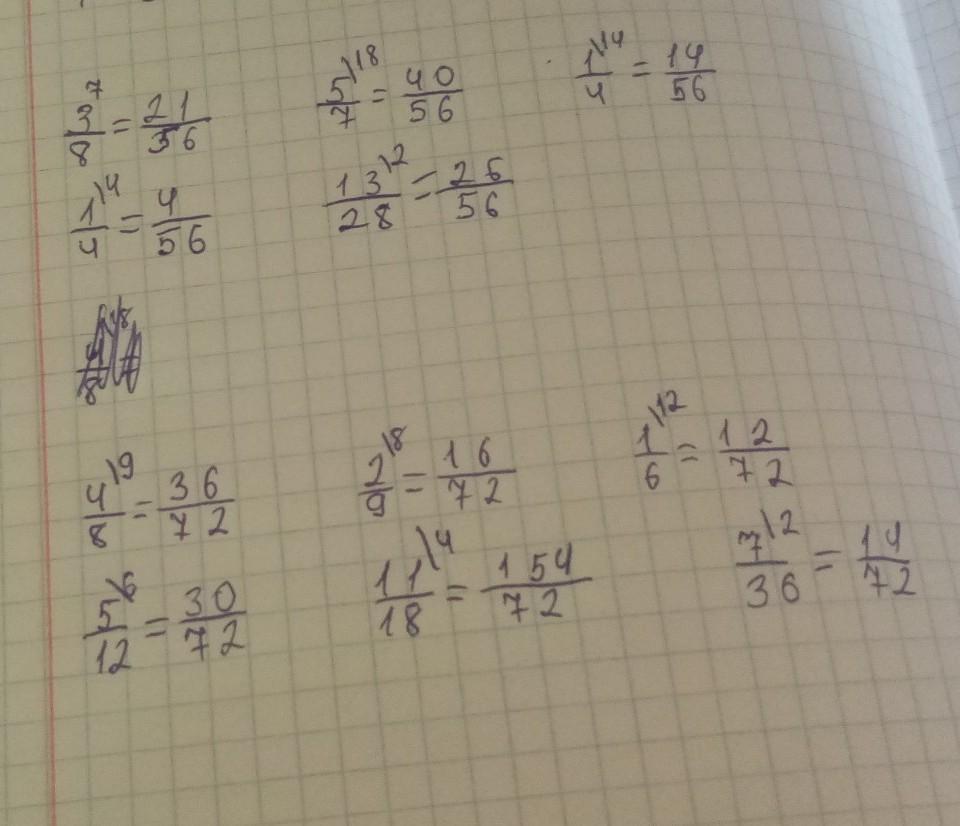 3/8 ⁷ = 21/56 5/7 \18 = 40/56 1/4 \14 = 14/56
1/4 \4 = 4/56 13/28 \2 = 26/56
4/8 \9 = 36/72 2/9 \8 = 16/72 1/6 \12 = 12/72
5/12 \6 = 30/72 11/18 \4 = 154/72 7/36 \2 = 14/72